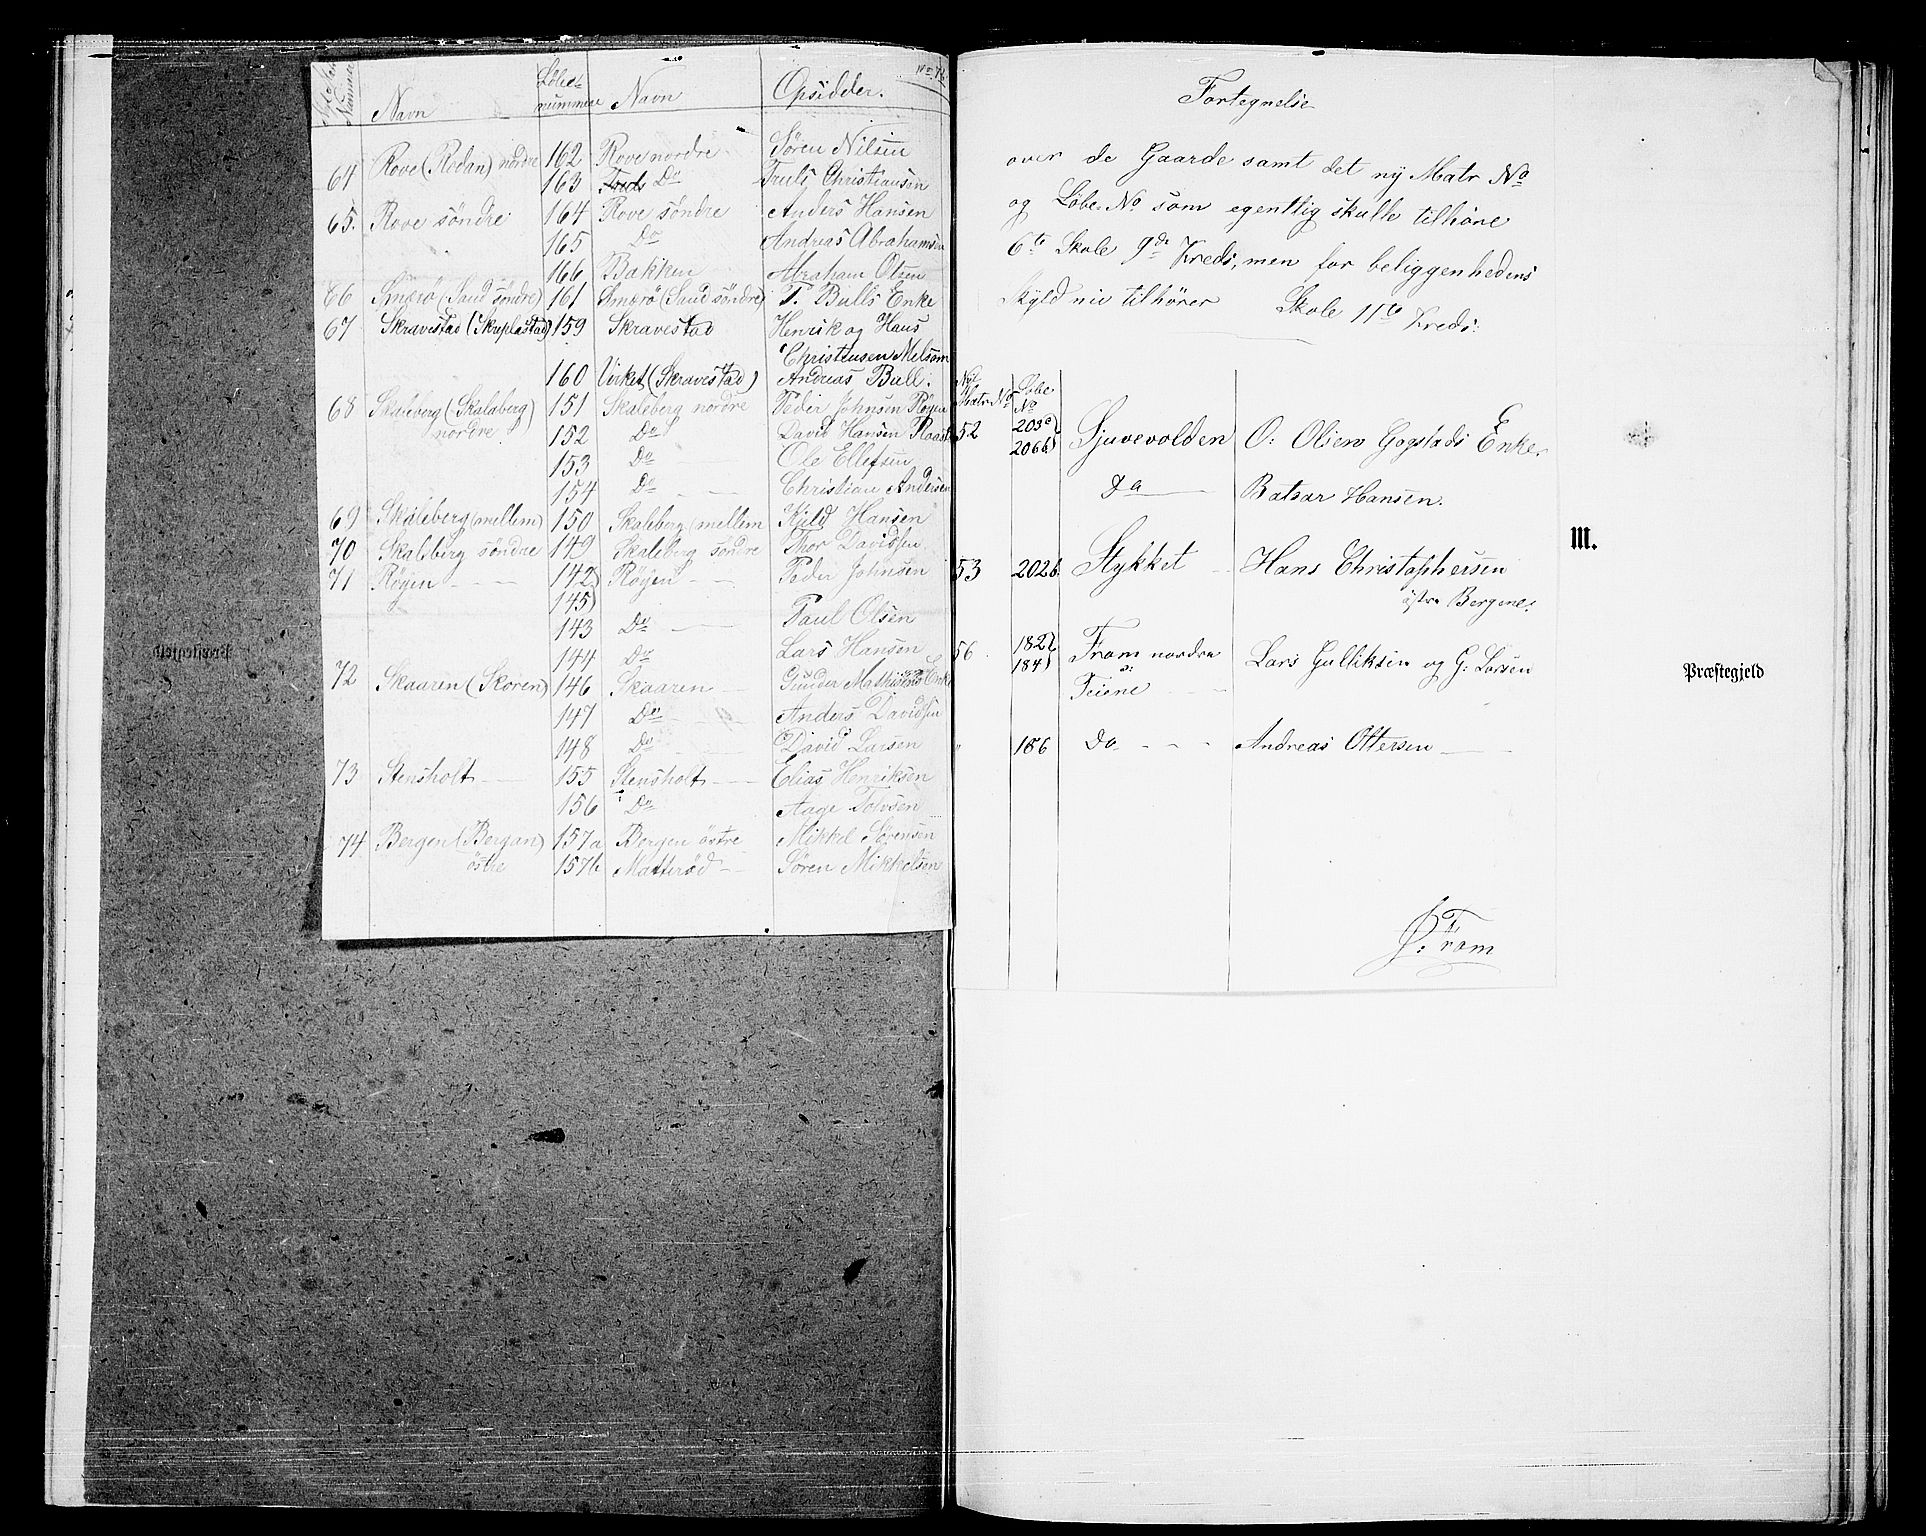 Matr. Nummer Navn Løbe-nummer Navn Opsidder.
64 Rove (Rodan) nordre 162 Rove nordre Søren Nilsen
163 Do Truls Christiansen
65. Rove söndre 164 Rove söndre Anders Hansen
165 Do Andreas Abrahamsen
166 Bakken Abraham Olsen
66 Smærö (Sand söndre) 161 Smærö (Sand söndre) T. Bulls Enke
67 Skravestad (Skreplastad) 159 Skravestad Henrik og Hans
Christensen Melsom
160 Virket (Skravestad) Andreas Bull.
68 Skaleberg (Skalaberg) 151 Skaleberg nordre Peder Johnsen Røyen
nordre 152 Do David Hansen Raast
153 Do Ole Ellefsen
154 Do Christian Andersen
69 Skaleberg (mellem) 150 Skaleberg (mellem Kjeld Hansen
70 Skaleberg söndre 149 Skaleberg söndre Thor Davidsen
71 Røyen 142) Røyen Peder Johnsen
145)
143 Do Paul Olsen
144 Do Lars Hansen
72 Skaaren (Skoren) 146 Skaaren Gunder Mathisens Enke
147 Do Anders Davidsen
148 Do David Larsen
73 Stensholt 155 Stensholt Elias Henriksen
156 Do Aage Tolvsen
74 Bergen (Bergan) 157a Bergen östre Mikkel Sørensen
östre 157b Matterød Søren Mikkelsen
Præstegjeld
Fortegnelse
over de Gaarde samt det ny Matr No
og Løbe No som egentlig skulle tilhöre
6te Skole 9de Kreds, men for beliggenhedens
Skyld nu tilhører Skole 11te Kreds.
Matr No Løbe No
52 203a) 206b) Sjuevolden O: Olsen Gogstads Enke.
Do Batsar Hansen.
53 202b. Stykket Hans Christophersen
östre Bergene.
56 182) 184) From nordre Lars Gulliksen og G: Larsen
Teiene
" 186 Do Andreas Ottersen
Ø: From
III.
Præstegjeld